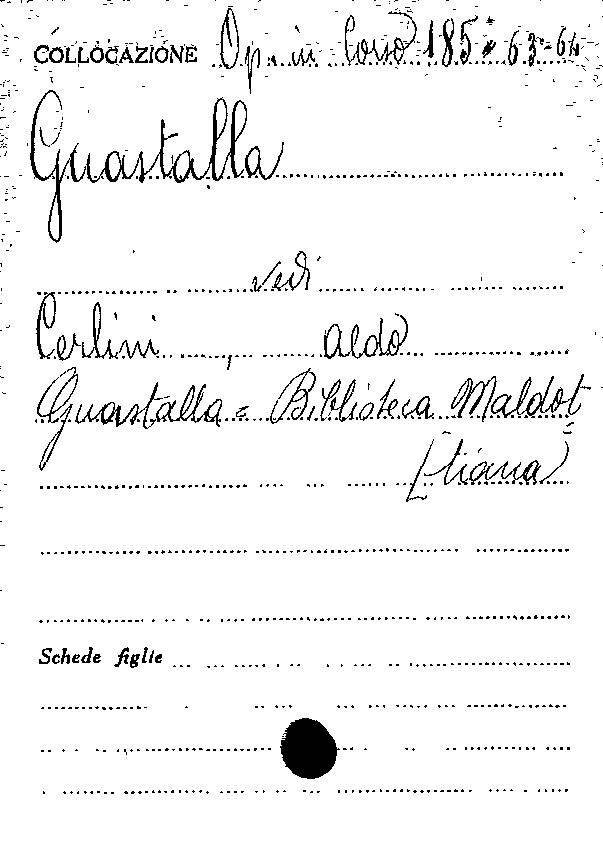 COLLOCAZIONE Op. in Corso 185 : 63-64
Guastalla
vedi
Cerlini, Aldo
Guastalla = Biblioteca Maldot =
[tiana
Schede figlie